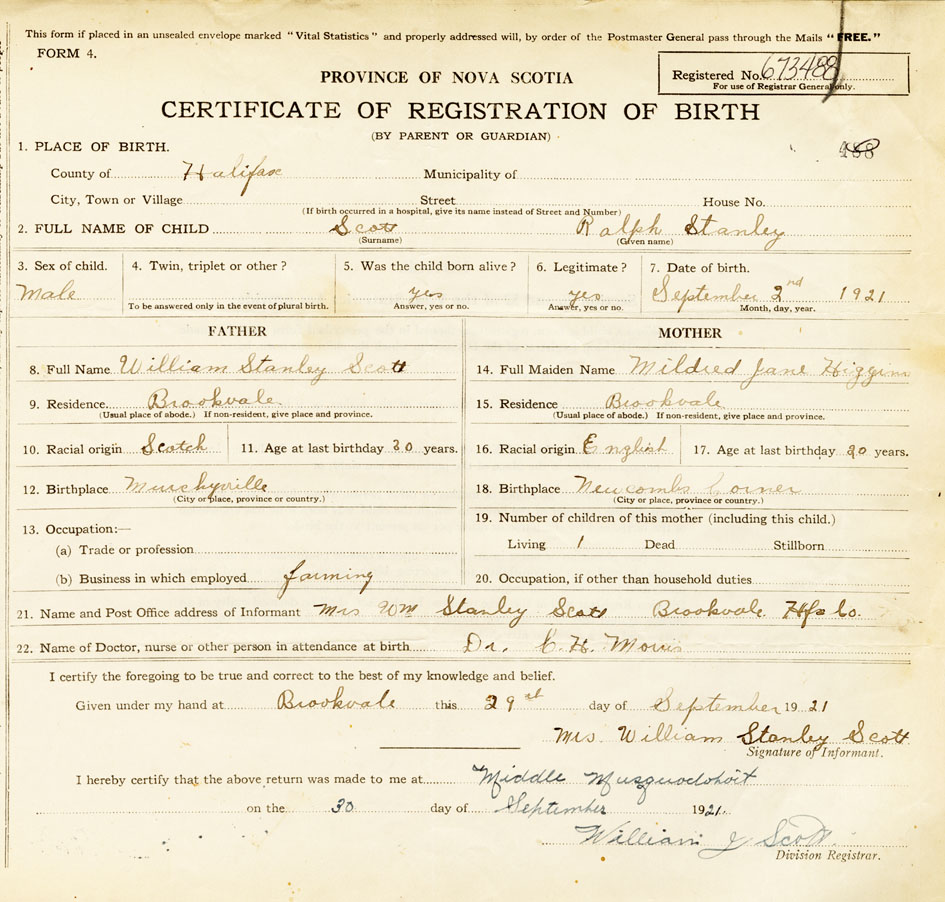 This form if placed in an unsealed envelope marked "Vital Statistics" and properly addressed will, by order of the Postmaster General pass through the Mails "FREE."
FORM 4.
PROVINCE OF NOVA SCOTIA
Registered No. 673488
For use of Registrar General only.
CERTIFICATE OF REGISTRATION OF BIRTH
(BY PARENT OR GUARDIAN)
1. PLACE OF BIRTH.
County of Halifax Municipality of
City, Town or Village Street House No.
(If birth occurred in a hospital, give its name instead of Street and Number)
2. FULL NAME OF CHILD Scott Ralph Stanley
(Surname) (Given name)
3. Sex of child. 4. Twin, triplet or other? 5. Was the child born alive? 6. Legitimate? 7. Date of birth.
Male yes yes September 2nd 1921
To be answered only in the event of plural birth. Answer, yes or no. Answer, yes or no. Month, day, year.
FATHER MOTHER
8. Full Name William Stanley Scott 14. Full Maiden Name Mildred Jane Higgins
9. Residence Brookvale 15. Residence Brookvale
(Usual place of abode.) If non-resident, give place and province. (Usual place of abode.) If non-resident, give place and province.
10. Racial origin Scotch 11. Age at last birthday 30 years. 16. Racial origin English 17. Age at last birthday 20 years.
12. Birthplace Murchyville 18. Birthplace Newcombs Corner
(City or place, province or country.) (City or place, province or country.)
13. Occupation:— 19. Number of children of this mother (including this child.)
(a) Trade or profession Living 1 Dead Stillborn
(b) Business in which employed farming 20. Occupation, if other than household duties
21. Name and Post Office address of Informant Mrs Wm Stanley Scott Brookvale Hfx Co.
22. Name of Doctor, nurse or other person in attendance at birth Dr. C. H. Morris
I certify the foregoing to be true and correct to the best of my knowledge and belief.
Given under my hand at Brookvale this 29 day of September 1921
Mrs William Stanley Scott
Signature of Informant.
I hereby certify that the above return was made to me at Middle Musquodoboit
on the 30 day of September 1921.
William J Scott
Division Registrar.